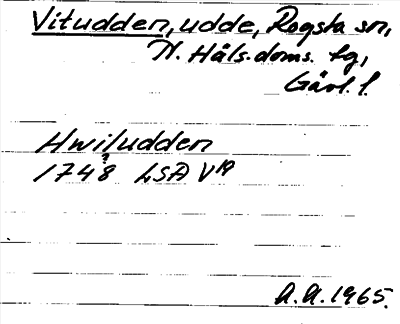 Vitudden, udde, Rogsta sn,
N. Häls. doms. tg,
Gävl. l.
Hwiludden
?
1748 LSA V19
A.A. 1965.